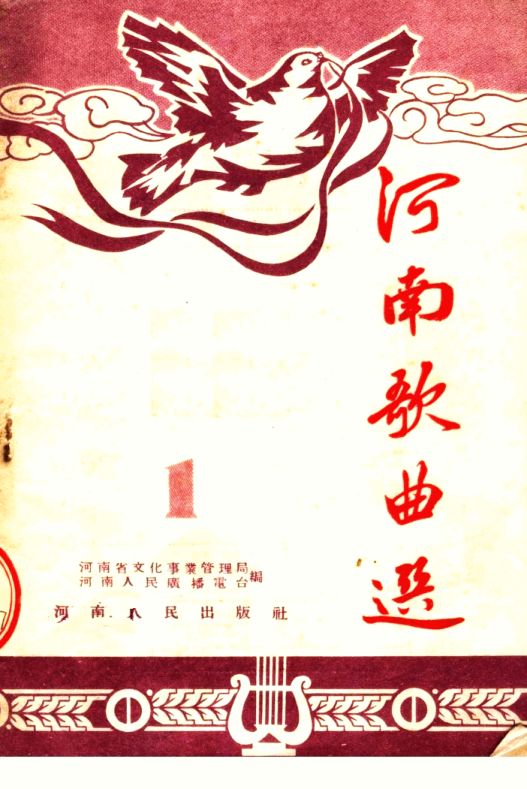 河南歌曲選
1
河南省文化事業管理局
河南人民廣播電台
編
河南人民出版社